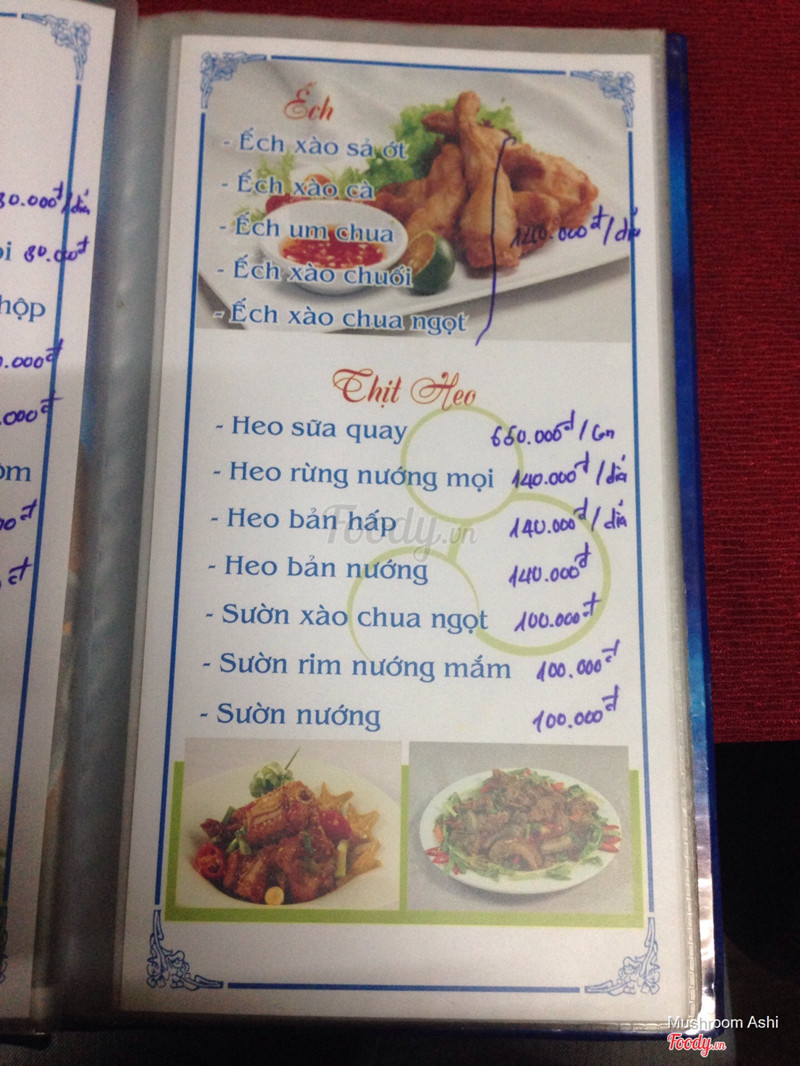 Ếch
- Ếch xào sả ớt
- Ếch xào cà
- Ếch um chua
- Ếch xào chuối
- Ếch xào chua ngọt
140.000đ/dĩa
Thịt Heo
- Heo sữa quay 660.000đ/con
- Heo rừng nướng mọi 140.000đ/dĩa
- Heo bản hấp 140.000đ/dĩa
- Heo bản nướng 140.000đ
- Sườn xào chua ngọt 100.000đ
- Sườn rim nướng mắm 100.000đ
- Sườn nướng 100.000đ
Foody.vn
80.000đ
hộp
Mushroom Ashi
Foody.vn